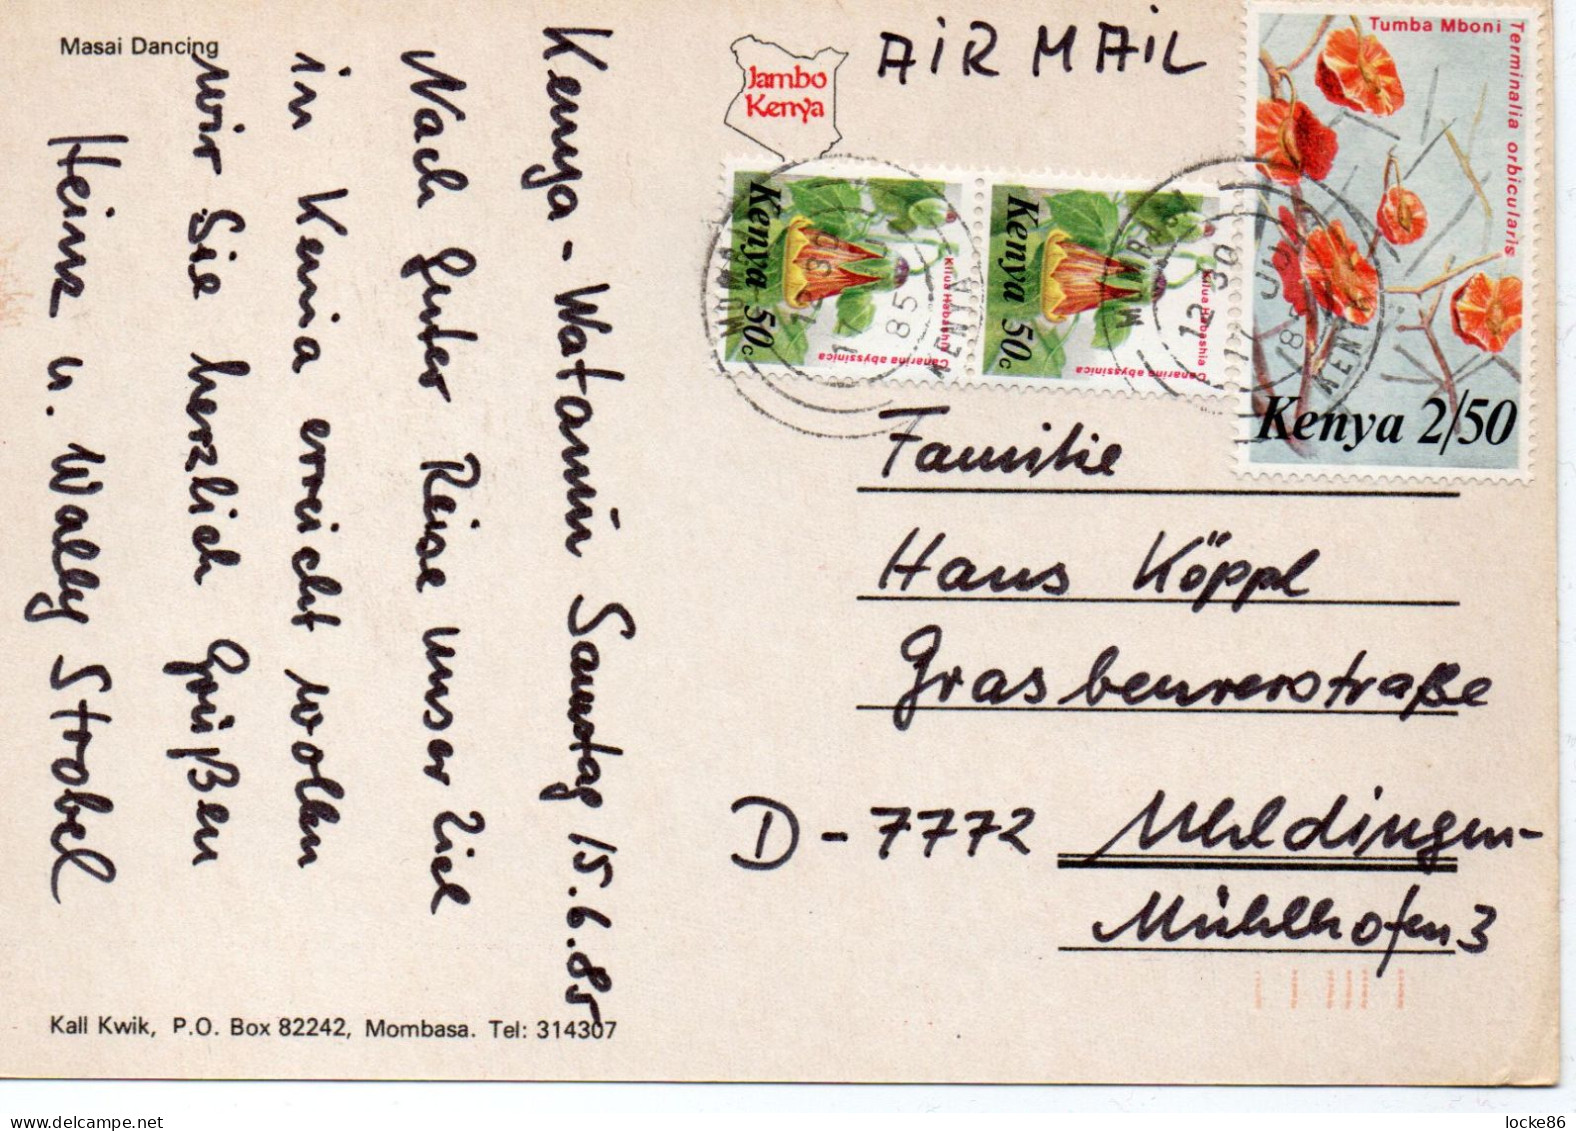 Masai Dancing
Kenya - Watamu Samstag 15.6.85
Nach guter Reise unser Ziel
in Kenia erreicht wollen
wir Sie herzlich Grüßen
Heinz u. Wally Strobel
Kall Kwik, P.O. Box 82242, Mombasa. Tel: 314307
Jambo
Kenya
AIR MAIL
Kenya 50c
Kilua Habashia
Canarina abyssinica
Kenya 50c
Kilua Habashia
Canarina abyssinica
Tumba Mboni
Terminalia orbicularis
Kenya 2/50
12 30
17
85
KENYA
12 30
17 JUN
85
KENYA
Familie
Hans Köppl
Grasbeurerstraße
D-7772 Uhldingen-
Mühlhofen 3
www.delcampe.net
locke86